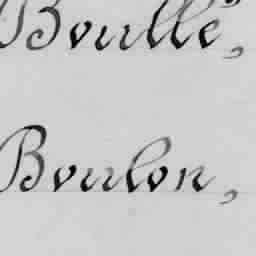 Boullé,
Boulon,